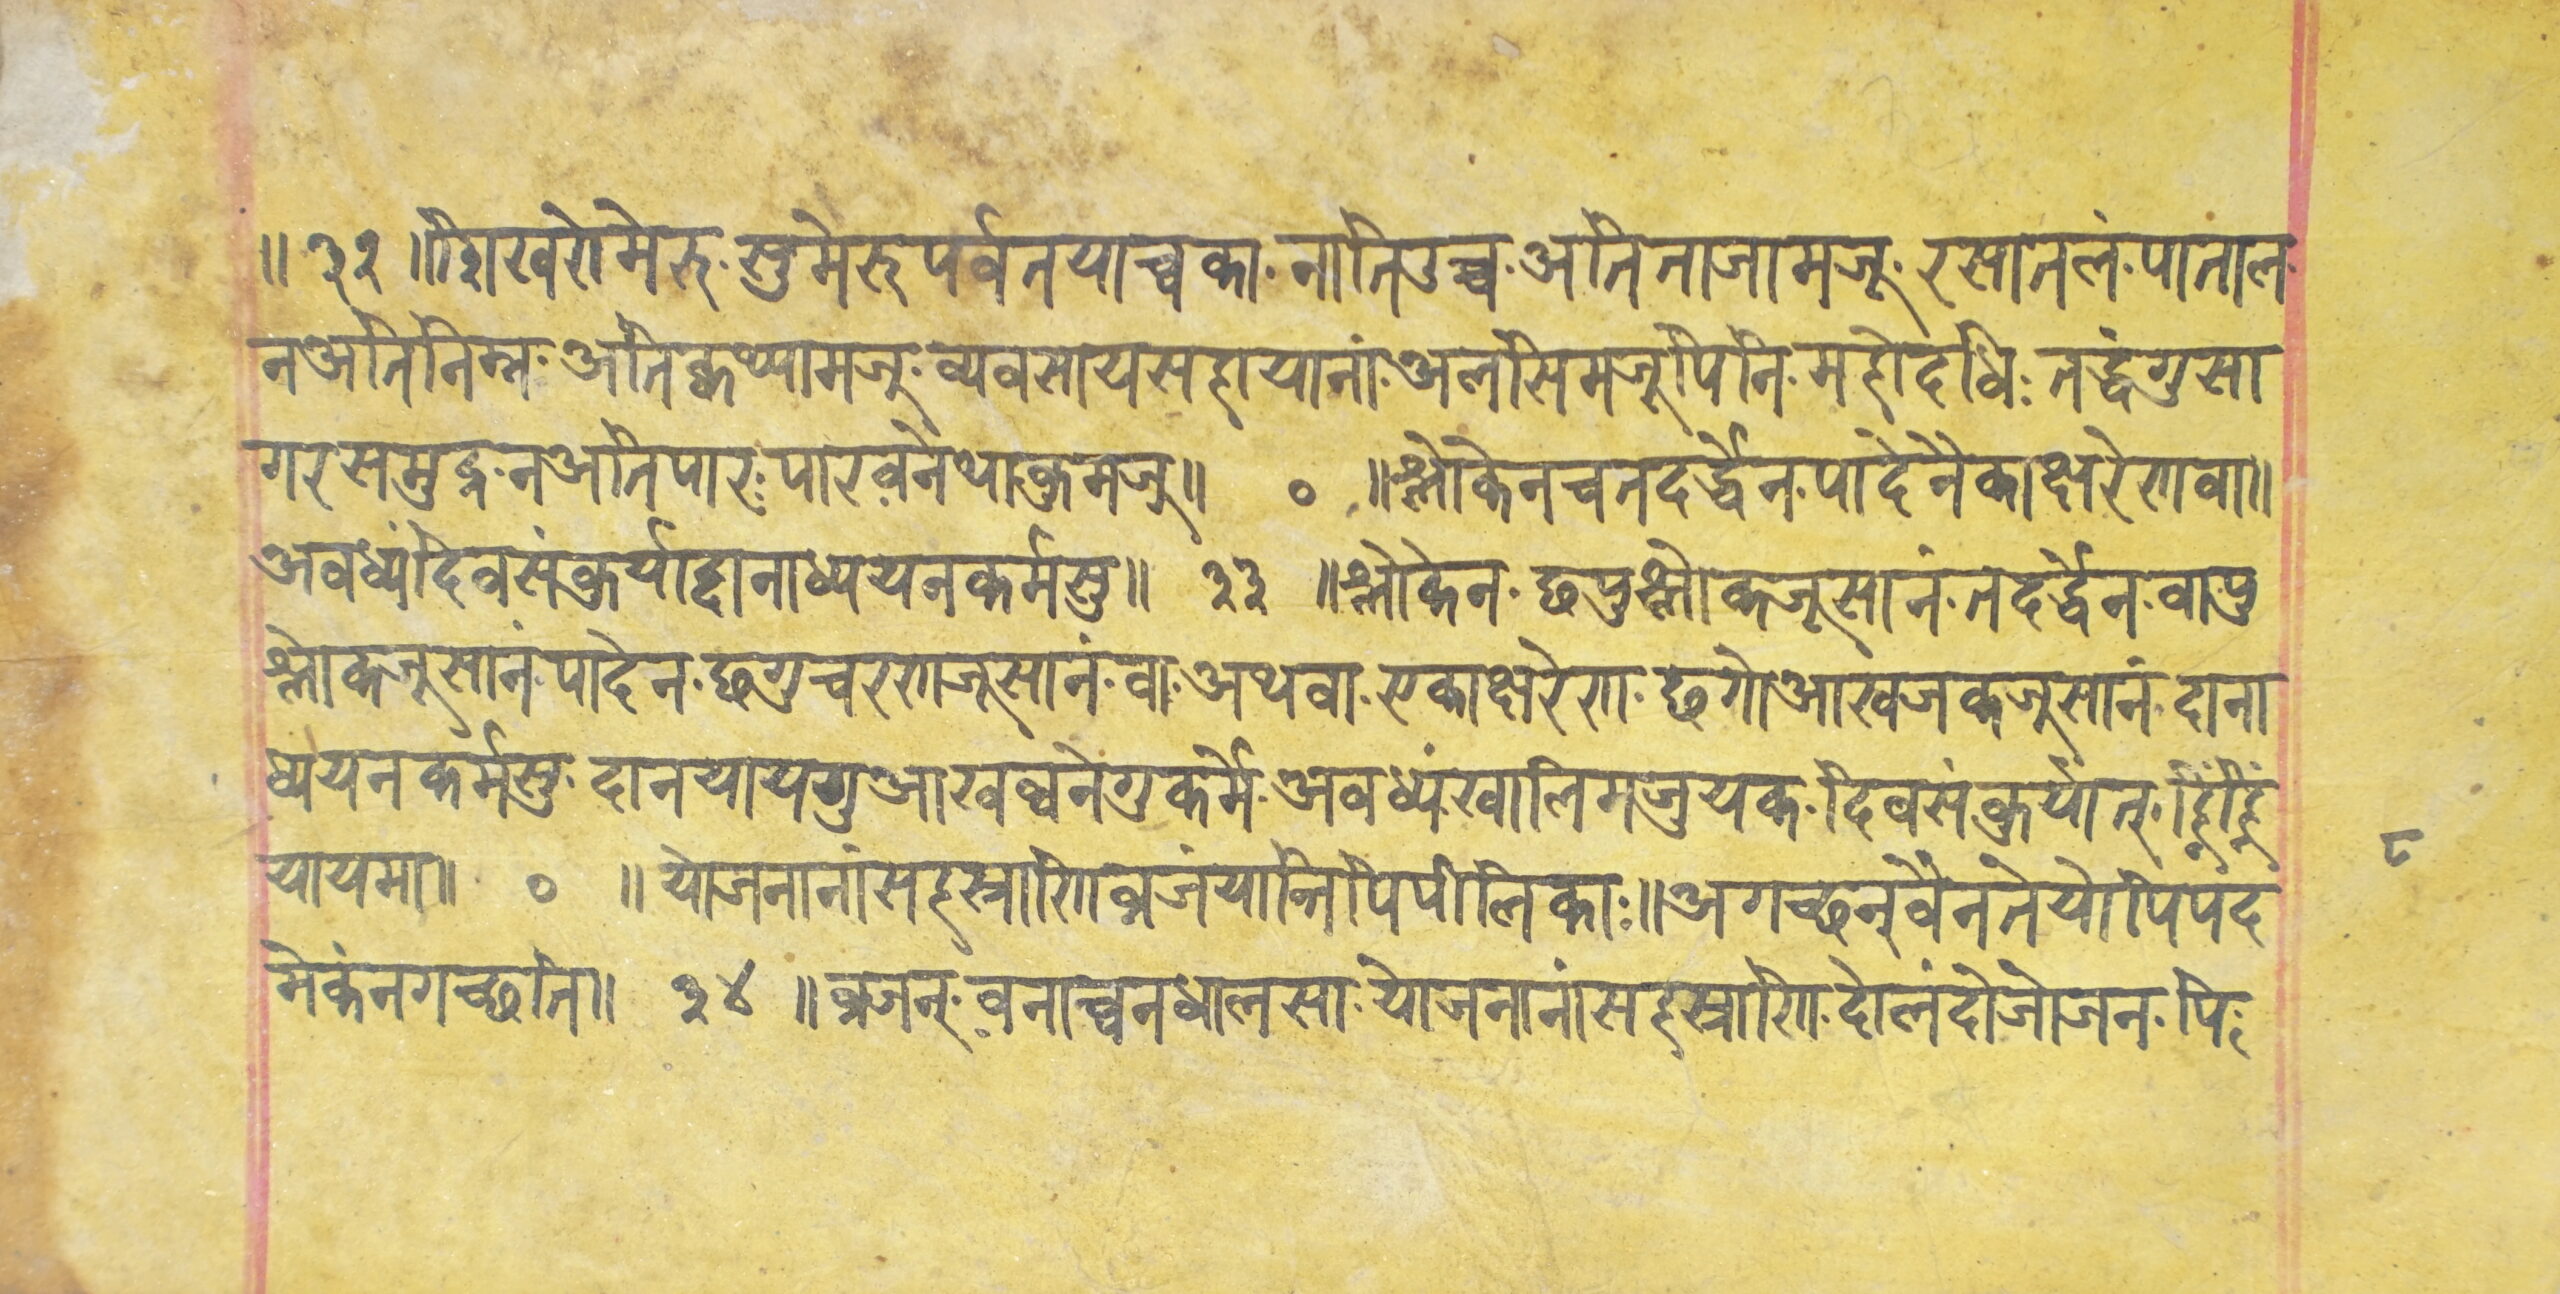 ॥ ३२ ॥शिखरोमेरु॰ सुमेरुपर्वतयाच्वका॰ नातिउच्च॰ अतिताजामजू॰ रसातलं॰ पाताल॰
नअतिनिम्न॰ अतिक्वथ्यामजु॰ व्यवसायसहायानां॰ अलसिमजूपिनि॰ महोदधिः तद्धंगुसा
गरसमुद्र॰ नअतिपारः पारवनेथाकुमजु॥ ० ॥श्लोकेनचतदर्द्धेन॰ पादेनैकाक्षरेणवा॥
अवध्यंदिवसंकुर्याद्दानाध्ययनकर्मसु॥ ३३ ॥श्लोकेन॰ छपुश्लोकजूसानं॰ तदर्द्धेन॰ वापु
श्लोकजूसानं॰ पादेन॰ छगुचरणजूसानं॰ वा॰ अथवा॰ एकाक्षरेण॰ छगोआखजकजुसानं॰ दाना
ध्ययनकर्मसु॰ दानयायगुआखब्वनेगुकर्मे॰ अवध्यंखालिमजुयक॰ दिवसंकुर्यात्॰ ह्निंह्निं
यायमा॥ ० ॥ योजनानांसहस्त्राणिव्रजंयान्तिपिपीलिकाः॥अगच्छन्वैनतेयोपिपद
मेकंनगच्छति॥ ३४ ॥व्रजन्॰ वनाच्वनधालसा॰ योजनानांसहस्त्राणि॰ दोलंदोजोजन॰ पि॰
८